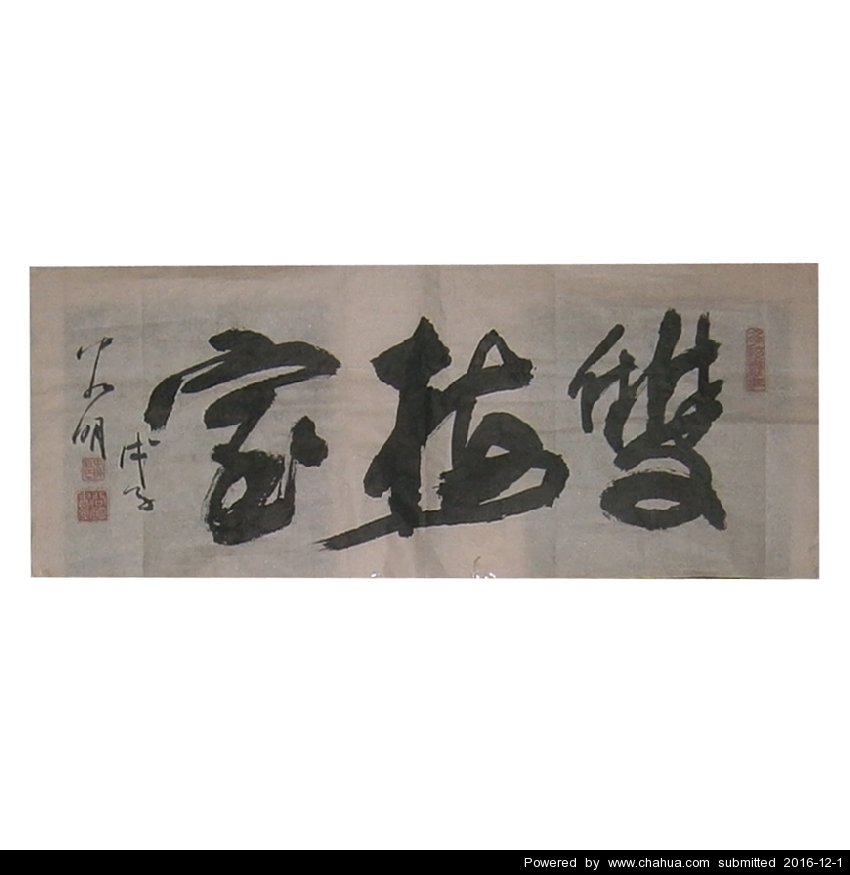 雙梅室
戊子
明
Powered by www.chahua.com submitted 2016-12-1